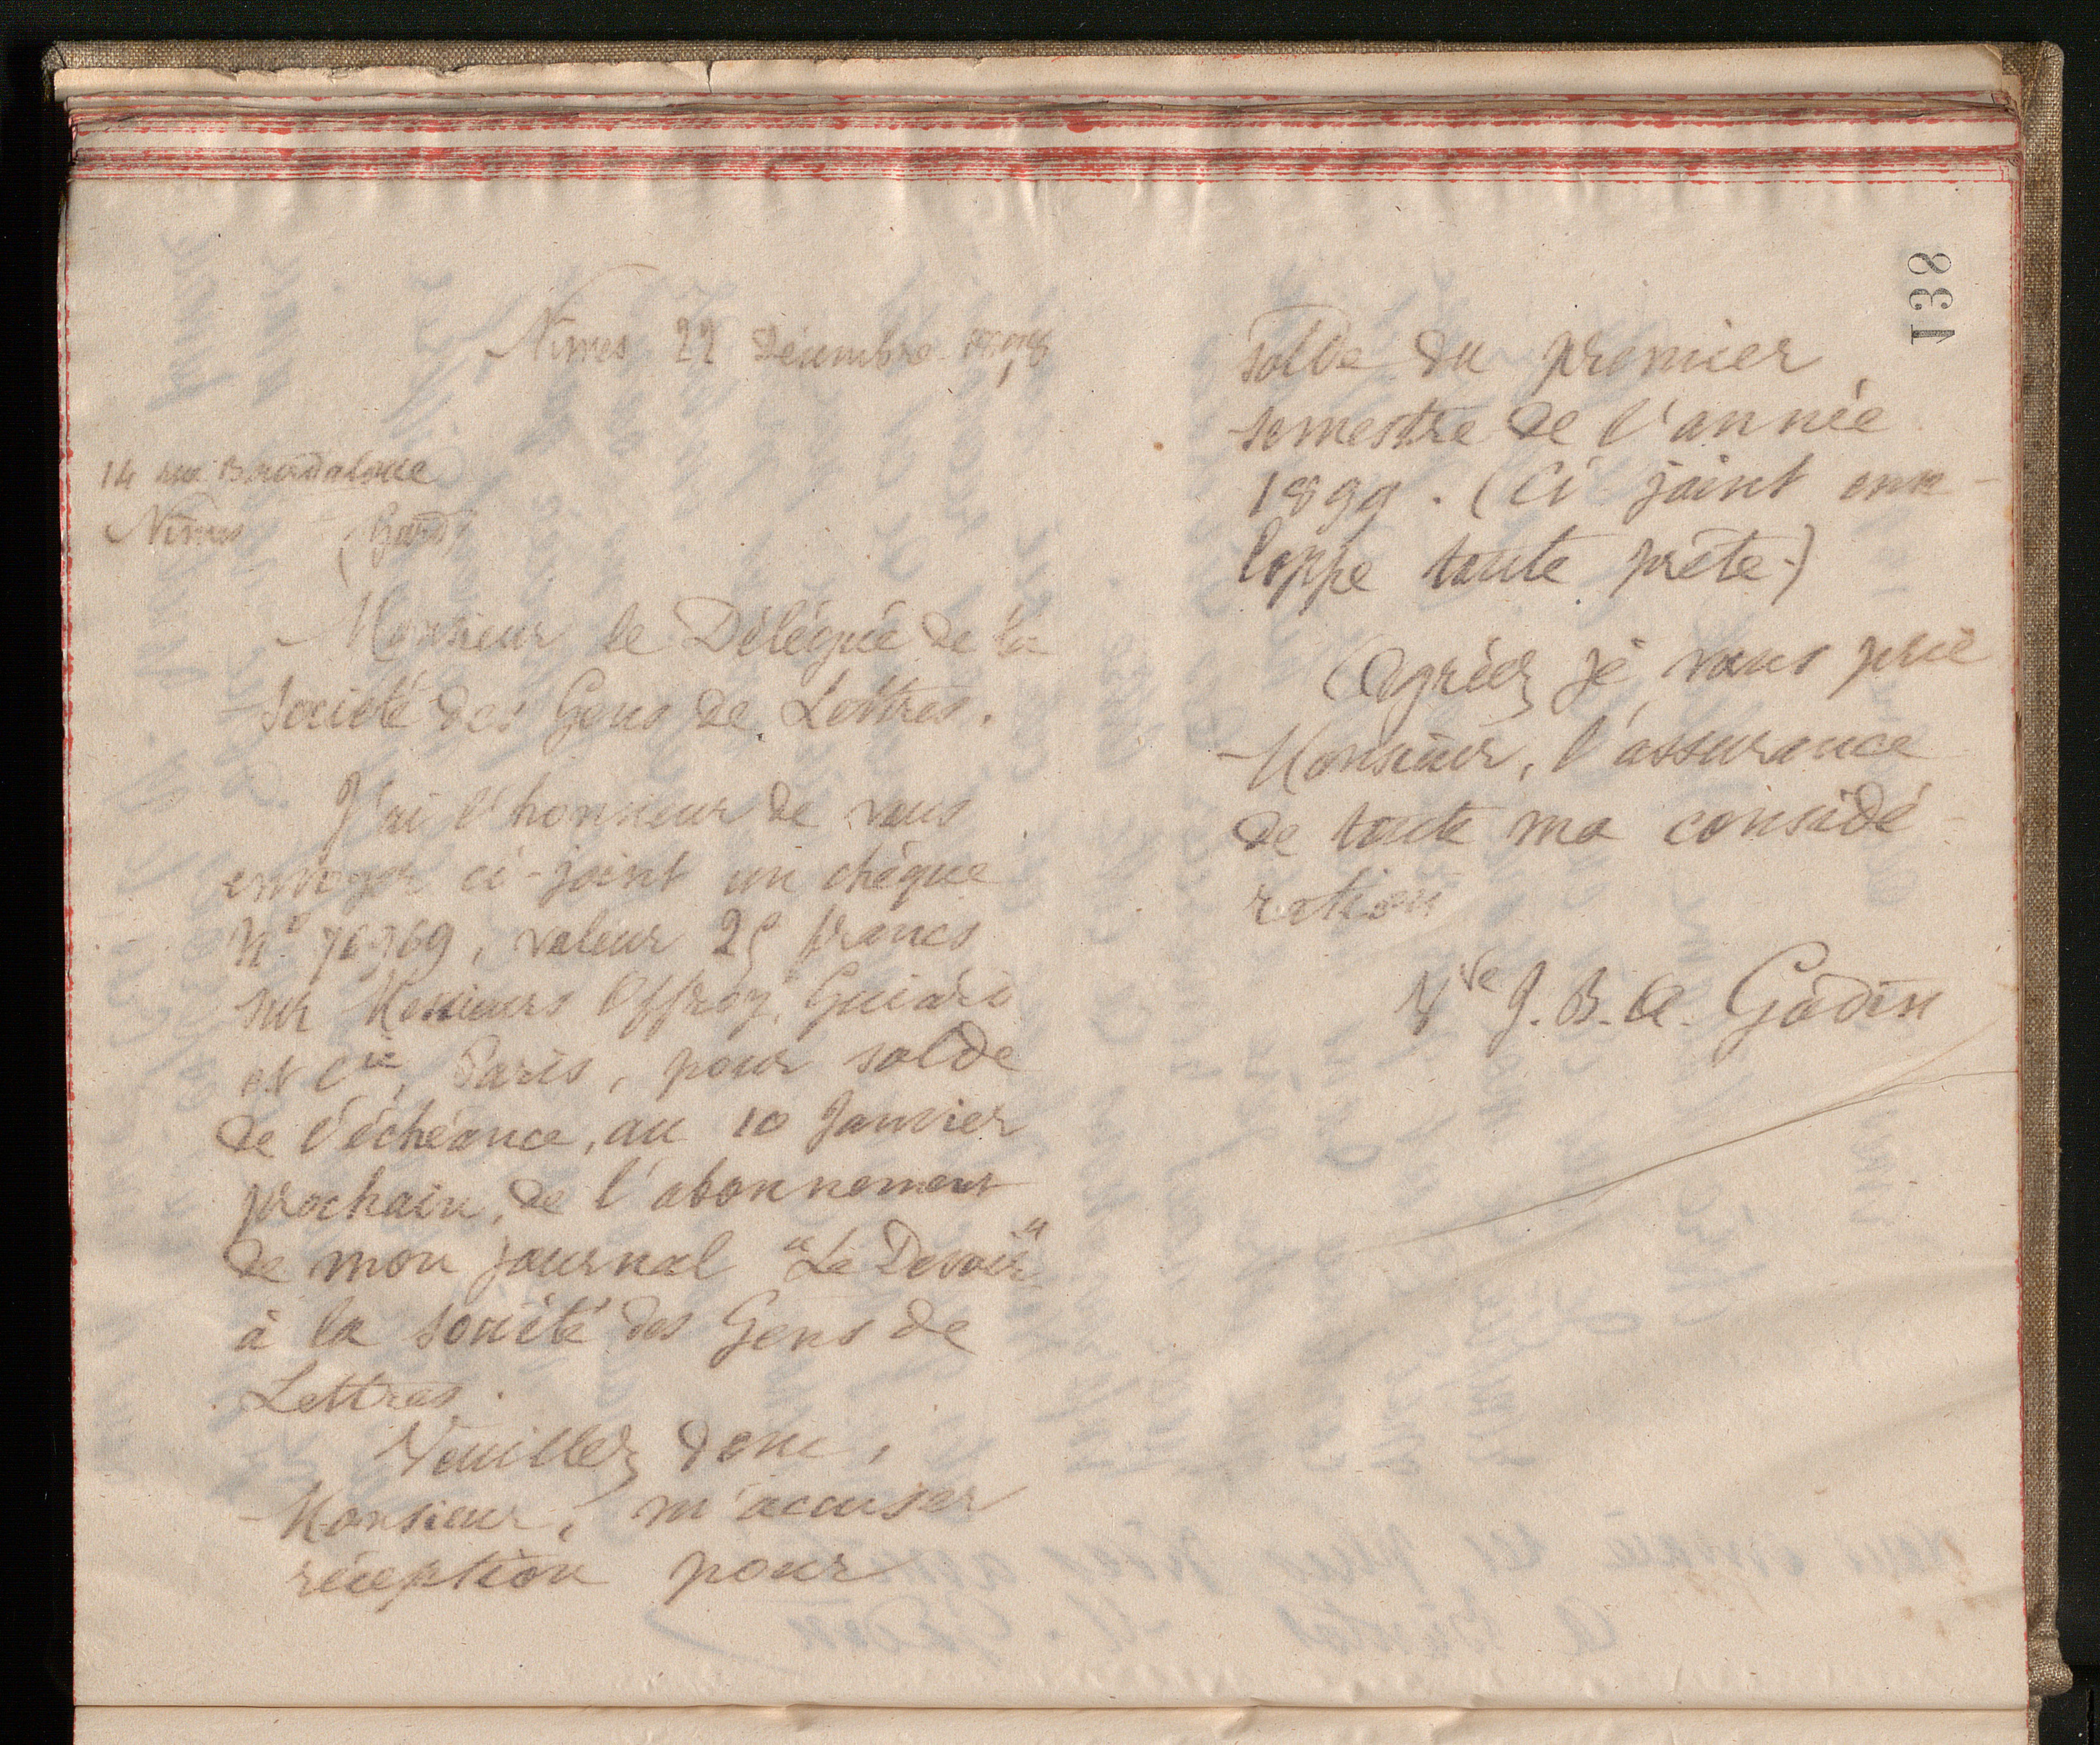 138
Nîmes 22 Décembre 1898
14 rue Bourdaloue
Nîmes (Gard)
Monsieur le Délégué de la
Société des Gens de Lettres.
J'ai l'honneur de vous
envoyer ci-joint un chèque
Nº 70969, valeur 25 francs
sur Messieurs Offroy, Guiard
et Cie, Paris, pour solde
de l'échéance, au 10 Janvier
prochain, de l'abonnement
de mon journal "Le Devoir"
à la société des Gens de
Lettres.
Veuillez donc,
Monsieur, m'accuser
réception pour
solde du premier
semestre de l'année
1899. (Ci joint enve-
loppe toute prête.)
Agréez je vous prie
Monsieur, l'assurance
de toute ma considé-
ration
Vve J. B. A. Godin